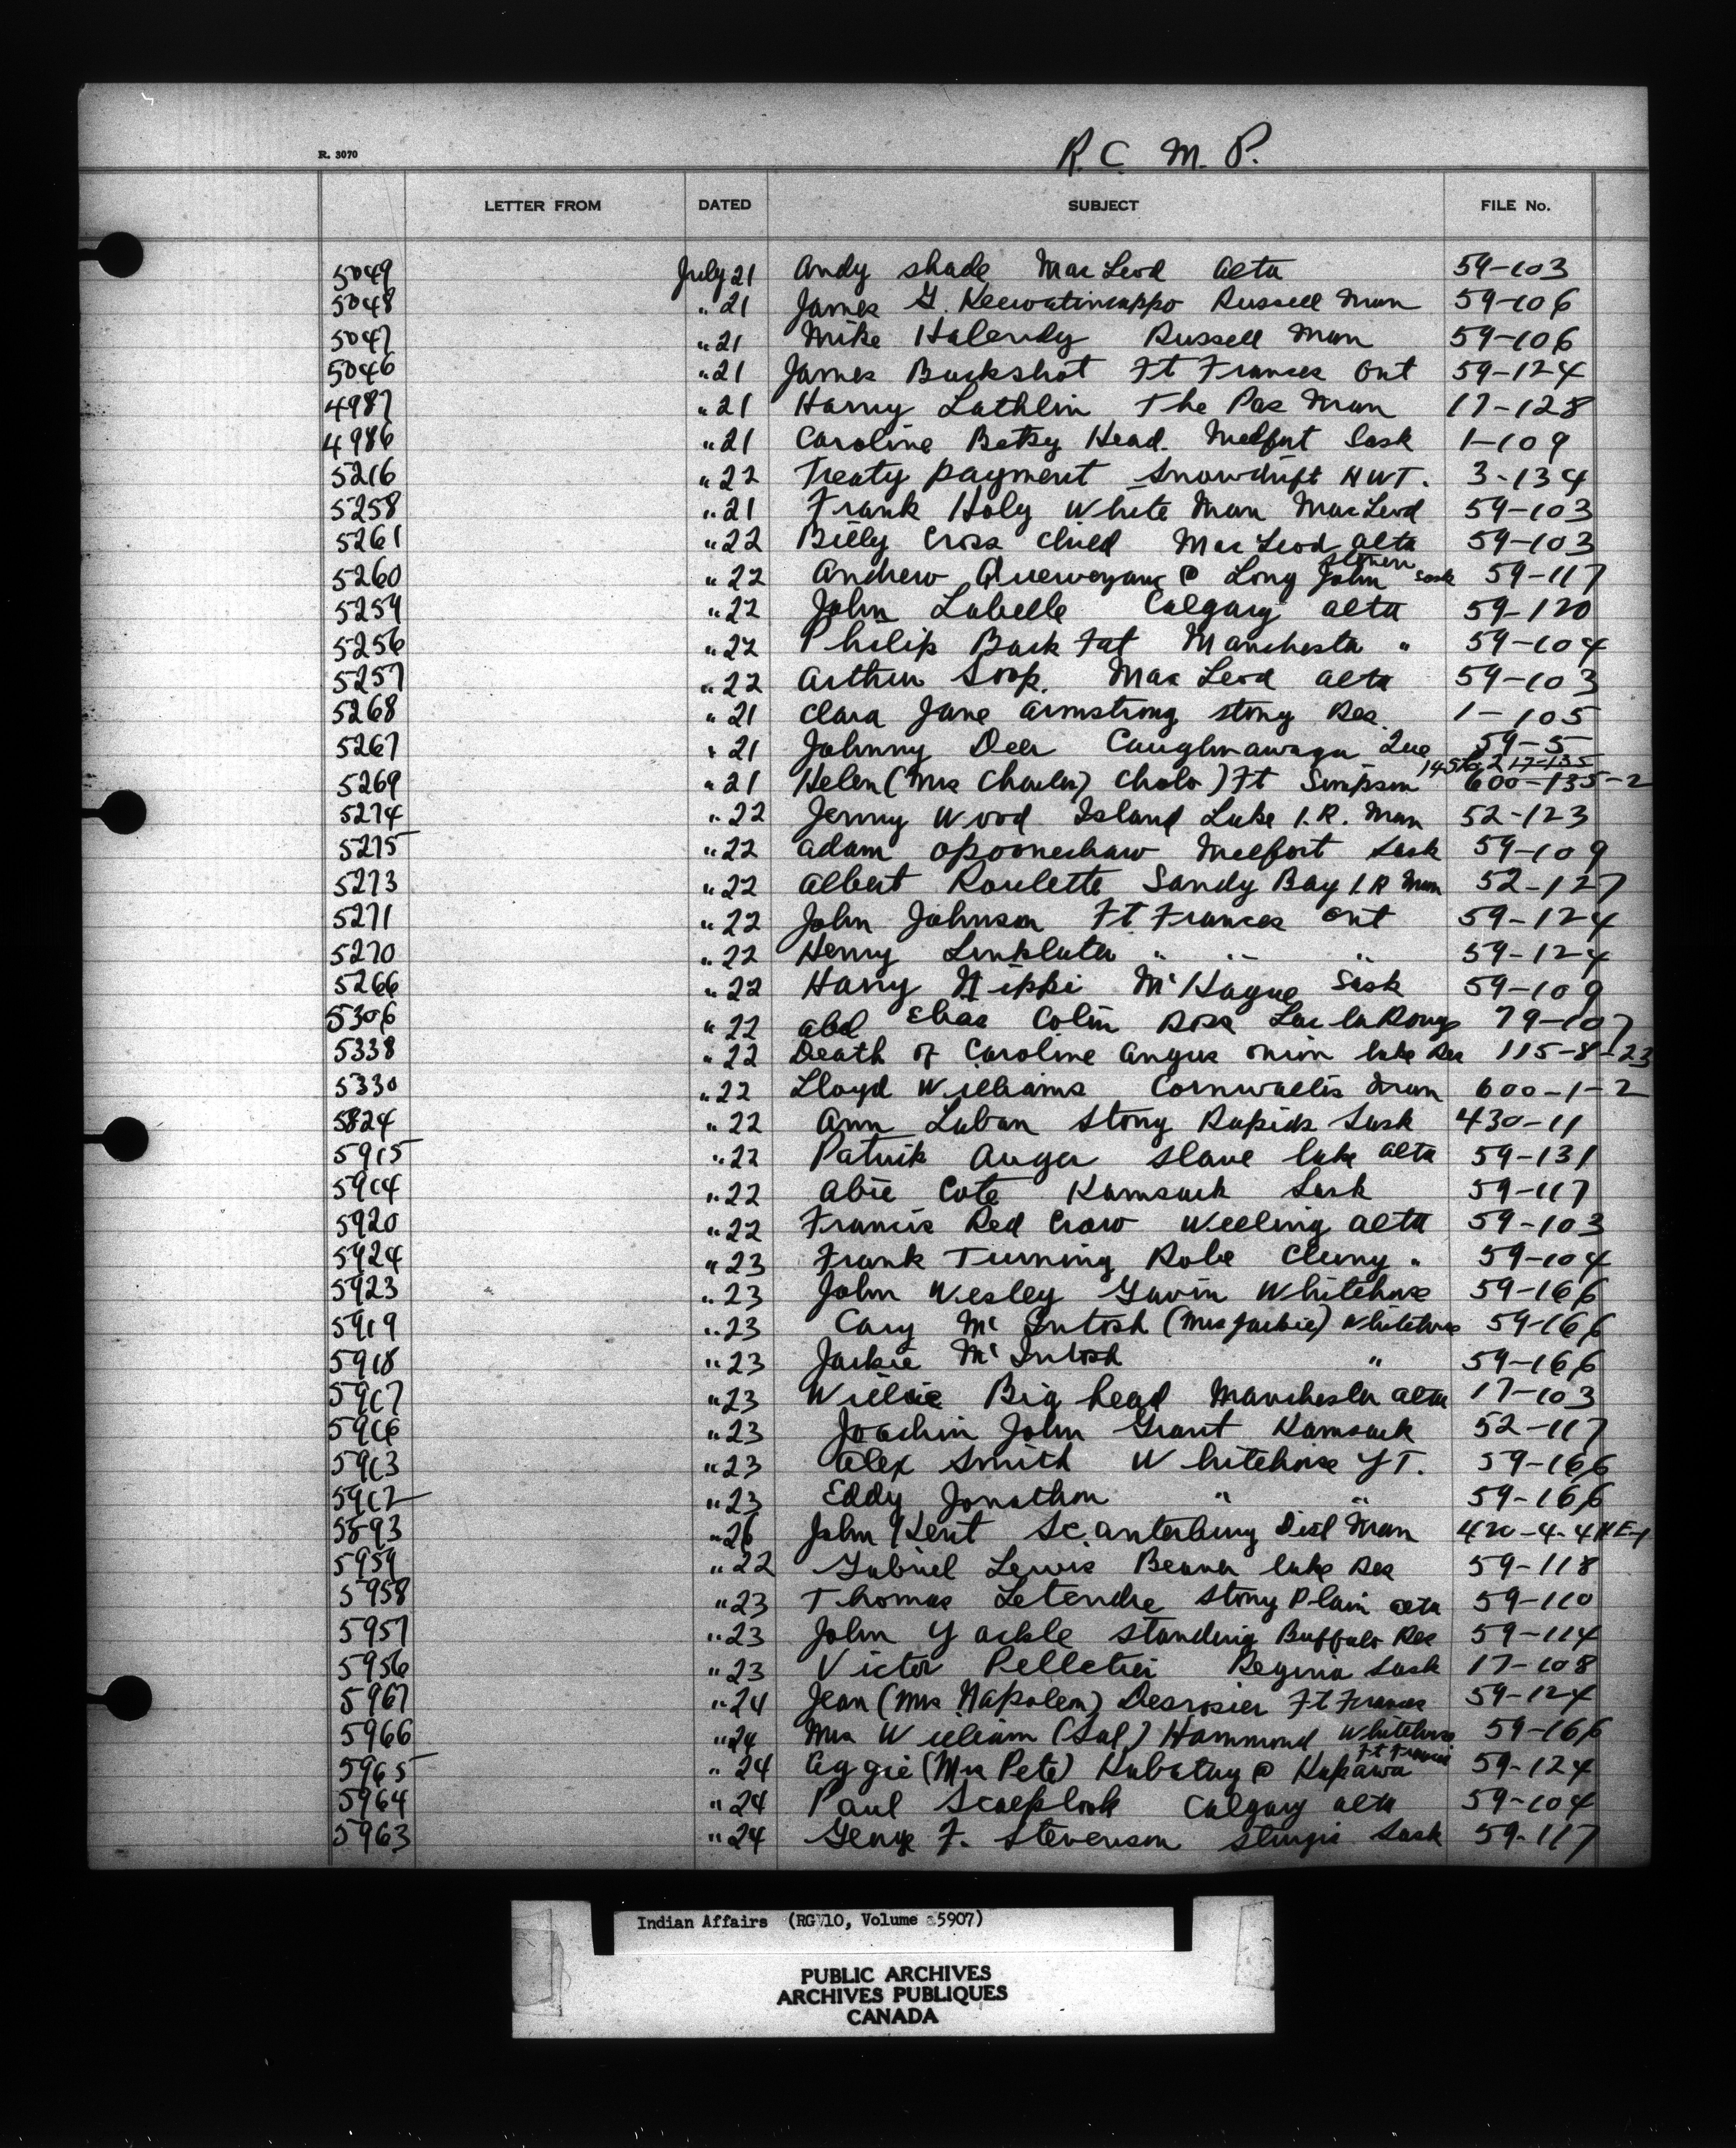 R. 3070
R. C. M. P.
LETTER FROM DATED SUBJECT FILE No.
5049 July 21 Andy Shade MacLeod Alta 59-103
5048 " 21 James G. Keewatincappo Russell Man 59-106
5047 " 21 Mike Halendy Russell Man 59-106
5046 " 21 James Buckshot Ft Frances Ont 59-124
4987 " 21 Harry Lathlin The Pas Man 17-128
4986 " 21 Caroline Betsy Head. Melfort Sask 1-109
5216 " 22 Treaty payment Snowdrift NWT. 3-134
5258 " 21 Frank Holy White Man MacLeod 59-103
5261 " 22 Billy Cross Child MacLeod Alta 59-103
5260 " 22 Andrew @ Long John Sask 59-117
5259 " 22 John Labelle Calgary Alta 59-120
5256 " 22 Philip Back Fat Manchester " 59-104
5257 " 22 Arthur Soop. MacLeod Alta 59-103
5268 " 21 Clara Jane Armstrong Stony Res. 1-105
5267 " 21 Johnny Deer Caughnawaga Que 59-5
5269 " 21 Helen (Mrs Charles) Cholo) Ft Simpson 17-135 600-135-2
5274 " 22 Jenny Wood Island Lake I.R. Man 52-123
5275 " 22 Adam Opooneshaw Melfort Sask 59-109
5273 " 22 Albert Roulette Sandy Bay I.R Man 52-127
5271 " 22 John Johnson Ft Frances Ont 59-124
5270 " 22 Henry Linklater " " " 59-124
5266 " 22 Harry Nippi McHague Sask 59-109
5306 " 22 abd Elias Colin Ross Lac la Ronge 79-107
5338 " 22 Death of Caroline Angus Onion Lake Res 115-8-23
5330 " 22 Lloyd Williams Cornwallis Man 600-1-2
5824 " 22 Ann Laban Stony Rapids Sask 430-11
5915 " 22 Patrik Auger Slave Lake Alta 59-131
5914 " 22 Abie Cote Kamsack Sask 59-117
5920 " 22 Francis Red Crow Welling Alta 59-103
5924 " 23 Frank Turning Robe Cluny " 59-104
5923 " 23 John Wesley Gavin Whitehorse 59-166
5919 " 23 Cary McIntosh (Mrs Jackie) Whitehorse 59-166
5918 " 23 Jackie McIntosh " 59-166
5917 " 23 Willie Big head Manchester Alta 17-103
5916 " 23 Joachin John Grant Kamsack 52-117
5913 " 23 Alex Smith Whitehorse YT. 59-166
5912 " 23 Eddy Jonathon " " 59-166
5893 " 26 John Kent Scanterbury Dist Man
5959 " 22 Gabriel Lewis Beaver Lake Res 59-118
5958 " 23 Thomas Letendre Stony Plain Alta 59-110
5957 " 23 John Yackle Standing Buffalo Res 59-114
5956 " 23 Victor Pelletier Regina Sask 17-108
5967 " 24 Jean (Mrs Napoleon) Desrosier Ft Frances 59-124
5966 " 24 Mrs William (Sal) Hammond Whitehorse 59-166
5965 " 24 Aggie (Mrs Pete) Kabatay @ Kapawa Ft Frances 59-124
5964 " 24 Paul Scalplock Calgary Alta 59-104
5963 " 24 George F. Stevenson Sturgis Sask 59-117
Indian Affairs (RG 10, Volume 5907)
PUBLIC ARCHIVES
ARCHIVES PUBLIQUES
CANADA